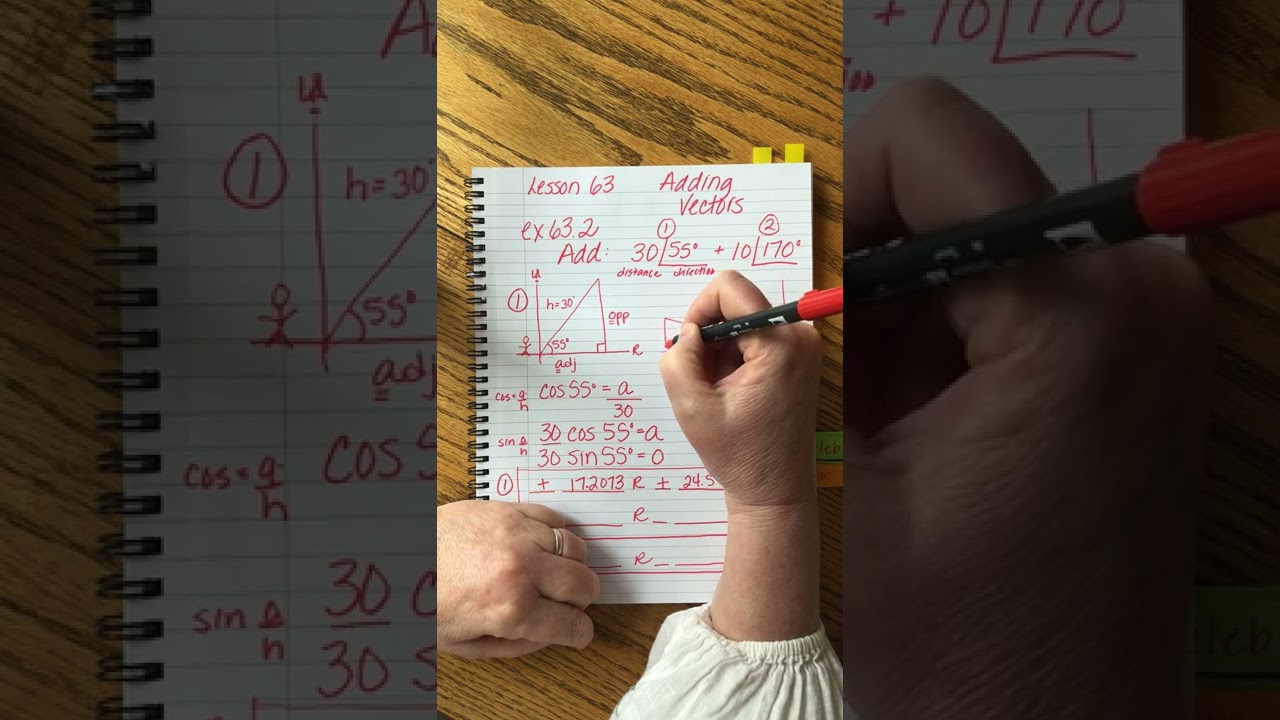 Lesson 63 Adding Vectors
ex 63.2
① ②
Add: 30∠55° + 10∠170°
distance direction
u
① h=30
opp
55° R
adj
cos=a/h cos 55° = a/30
sin o/h 30 cos 55° = a
30 sin 55° = o
① + 17.2073 R + 24.5
R
R